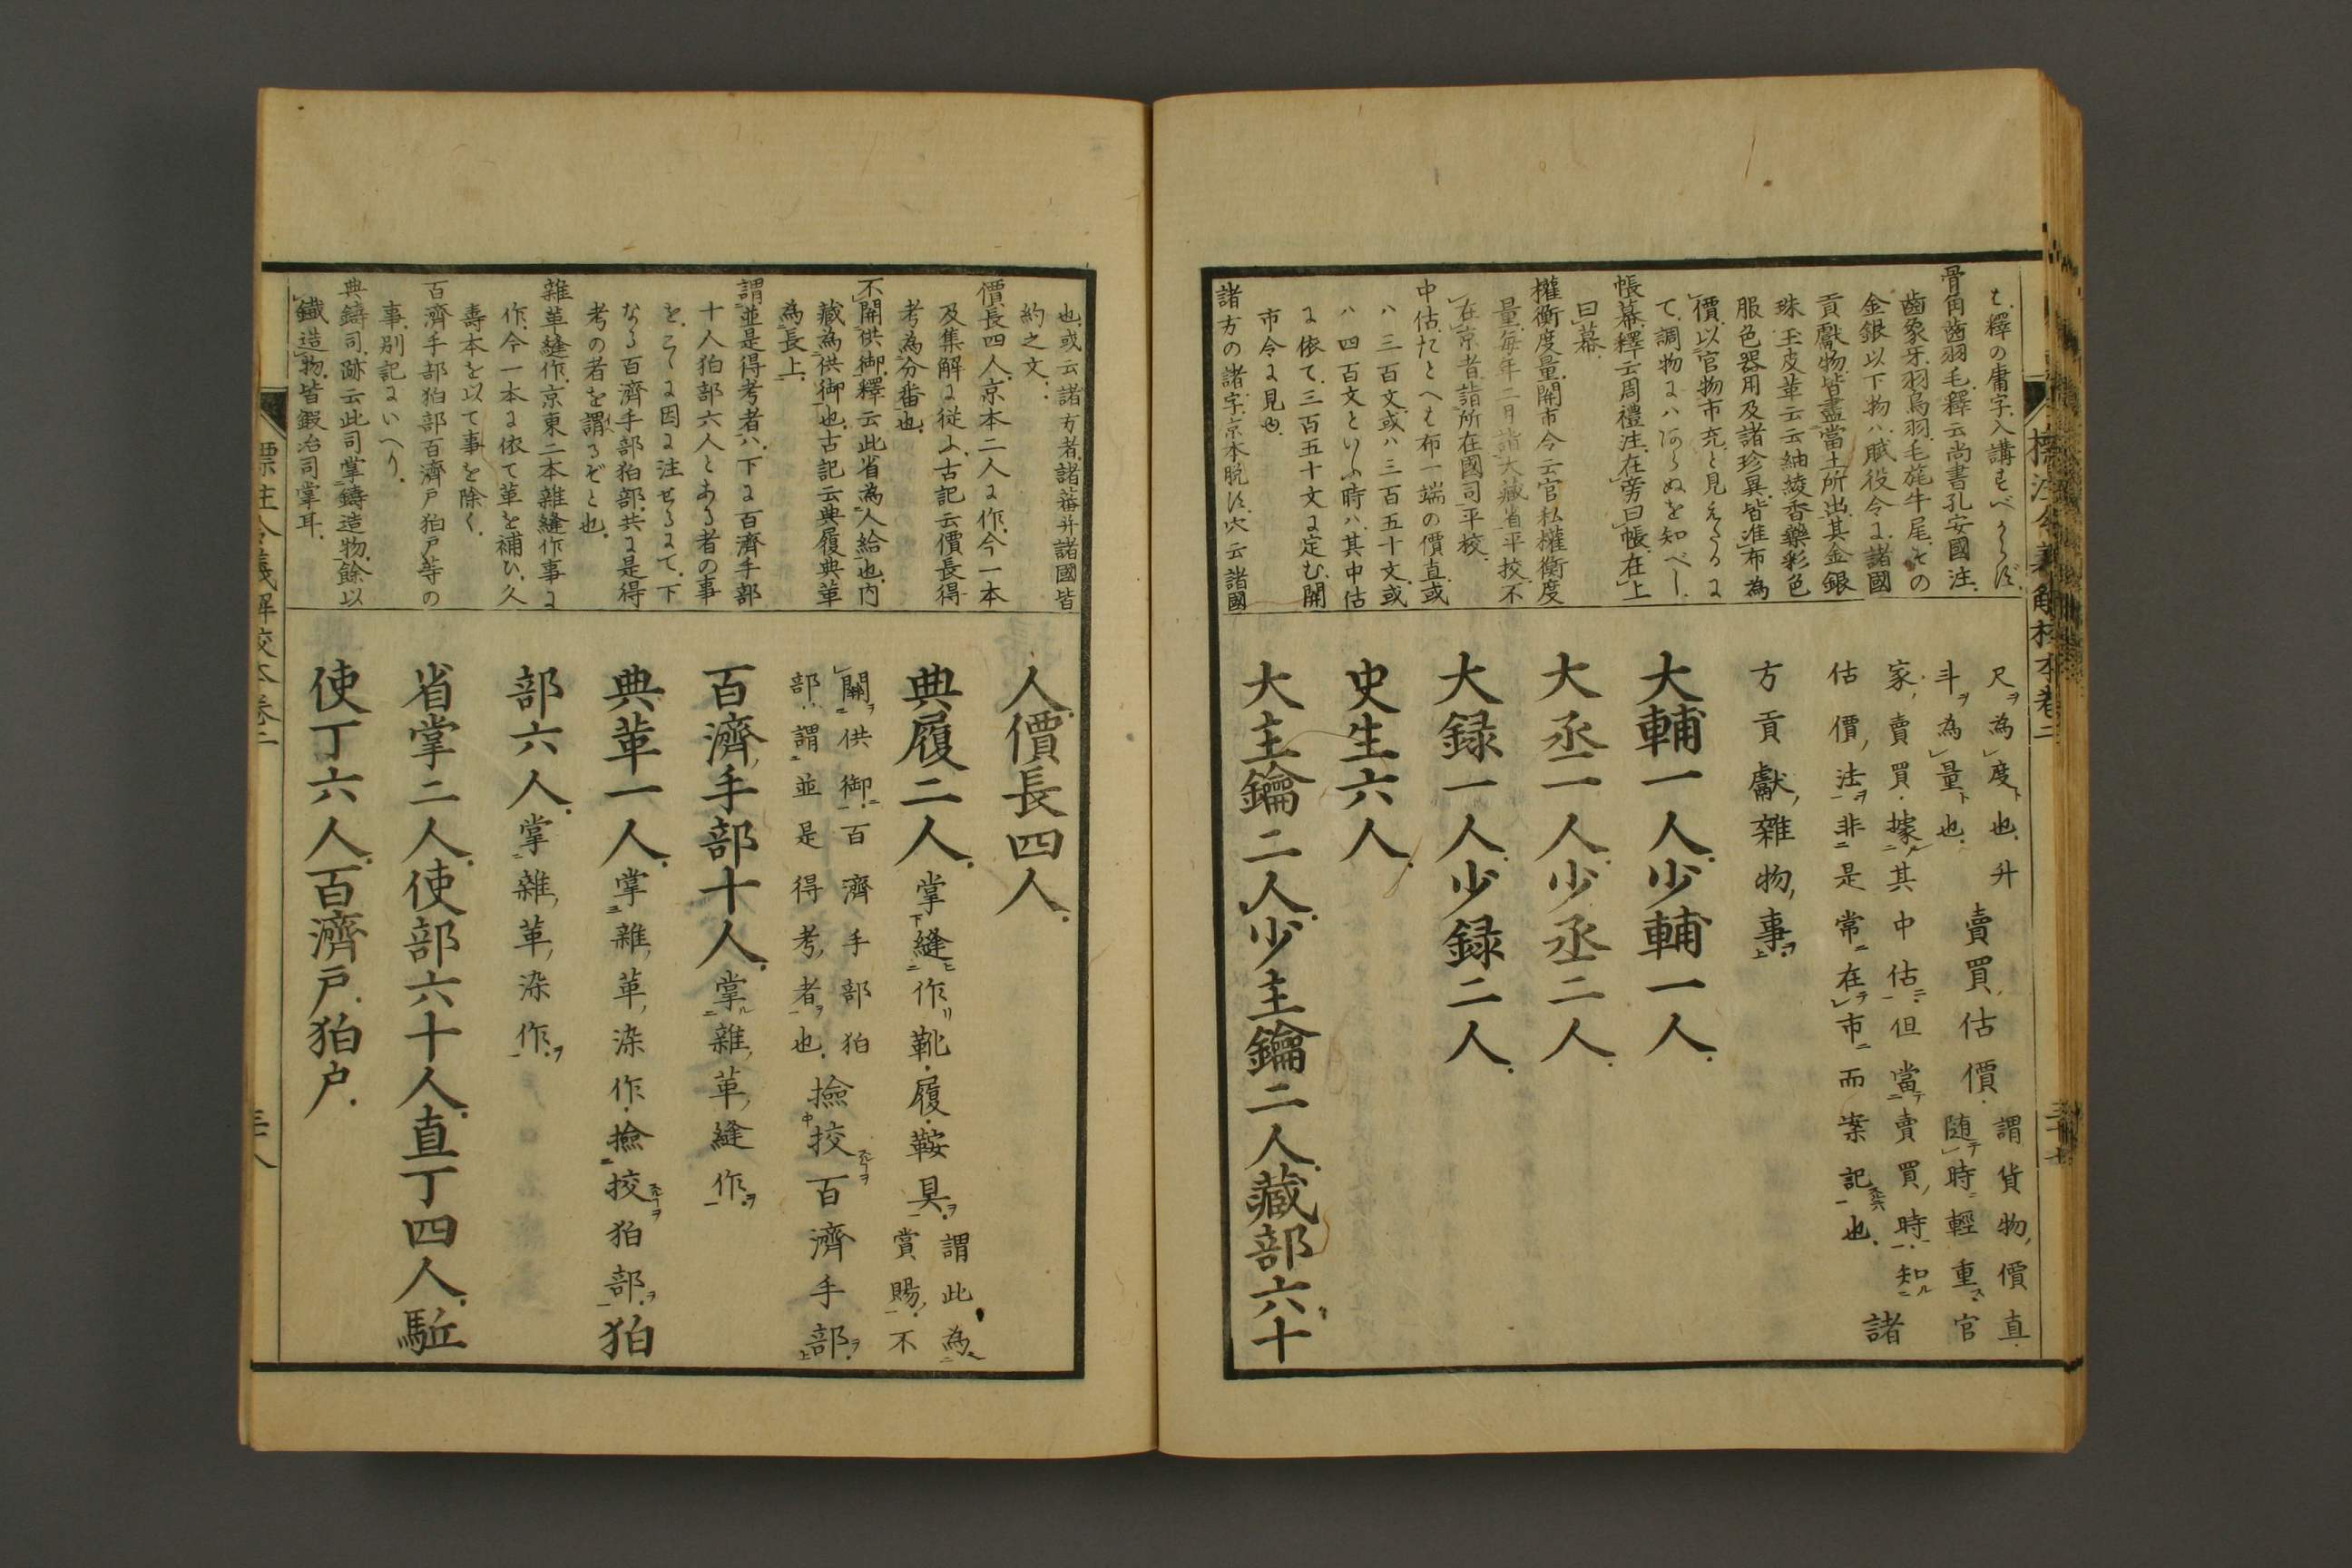 も釋の庸字入講すべからず
骨角齒羽毛釋云尚書孔安國注
齒象牙羽鳥羽毛旄牛尾その
金銀以下物ハ賦役令に諸國
貢獻物皆盡當土所出其金銀
珠玉皮革云云紬綾香藥彩色
服色器用及諸珍異皆准布為
價以官物市充と見えたるに
て調物にハあらぬを知べし
帳幕釋云周禮注在旁曰帳在上
曰幕
權衡度量開市令云官私權衡度
量毎年二月詣大藏省平挍不
在京者詣所在國司平校
中估たとへも布一端の價直或
ハ三百文或ハ三百五十文或
ハ四百文といふ時ハ其中估
に依て三百五十文に定む開
市令に見也
諸方の諸字京本脱ず穴云諸國
尺ヲ為度ト也升
斗ヲ為量ト也
賣買估價
謂貨物價直
随テ時ニ輕重ス官
家賣買據其中估ニ但當テ賣買時知ル
估價法ヲ非是常ニ在テ市ニ而案記也
諸
方貢獻雜物事ヲ
大輔一人少輔一人
大丞一人少丞二人
大録一人少録二人
史生六人
大主鑰二人少主鑰二人藏部六十
標注令義解校本巻二
三十七
也或云諸方者諸蕃并諸國皆
約之文
價長四人京本二人に作今一本
及集解に從ふ古記云價長得
考為分番也
不開供御釋云此省為人給也内
藏為供御也古記云典履典革
為長上
謂並是得考者ハ下に百濟手部
十人狛部六人とある者の事
を、こゝに因に注せるにて下
なる百濟手部狛部共に是得
考の者を謂るぞと也
雜革縫作京東二本雜縫作事に
作今一本に依て革を補ひ久
壽本を以て事を除く
百濟手部狛部百濟戸狛戸等の
事別記にいへり
典鑄司跡云此司掌鑄造物餘以
鐵造物皆鍜冶司掌耳
人價長四人
典履二人掌縫作靴履鞍具ヲ
謂此為
賞賜不
關ヲ供御百濟手部狛
部謂並是得考者ヲ也
撿挍百濟手部ヲ
百濟手部十人掌雜革縫作ヲ
典革一人掌雜革染作撿挍狛部ヲ狛
部六人掌雜革染作ヲ
省掌二人使部六十人直丁四人駈
使丁六人百濟戸狛戸
標註令義解校本巻二
三十八